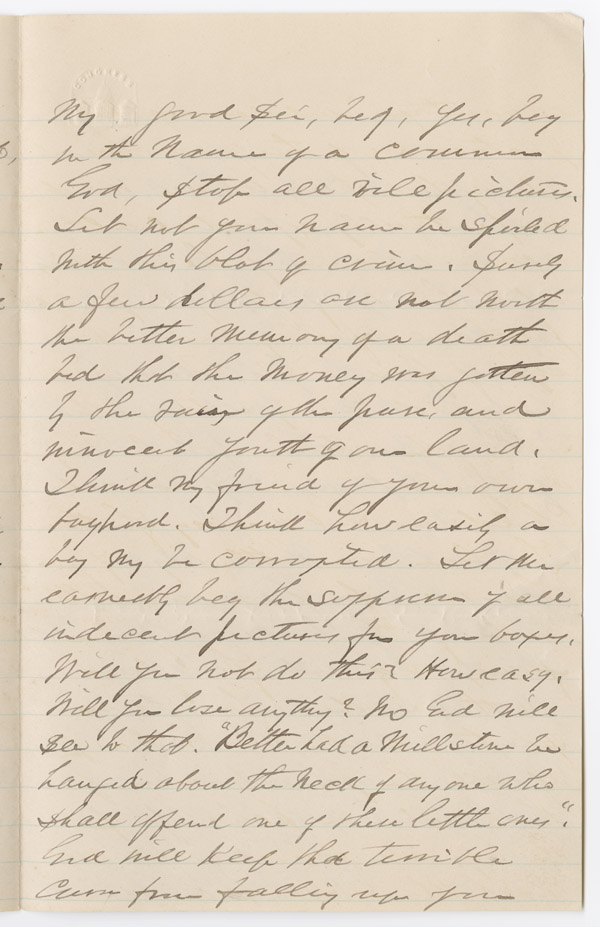 CONGRESS
My good Sir, beg, yes, beg
in the name of a common
God, stop all vile pictures.
Let not your name be spoiled
with this blot of crime. Surely
a few dollars are not worth
the better memory of a death
bed that the money was gotten
by the ruin of the pure, and
innocent youth of our land.
Think my friend of your own
boyhood. Think how easily a
boy my be corrupted. Let me
earnestly beg the suppression of all
indecent pictures from your boxes.
Will you not do this? How easy.
Will you lose anything? No God will
see to that. "Better had a Millstone be
hanged about the neck of anyone who
shall offend one of these little ones".
God will keep that terrible
Curse from falling upon you